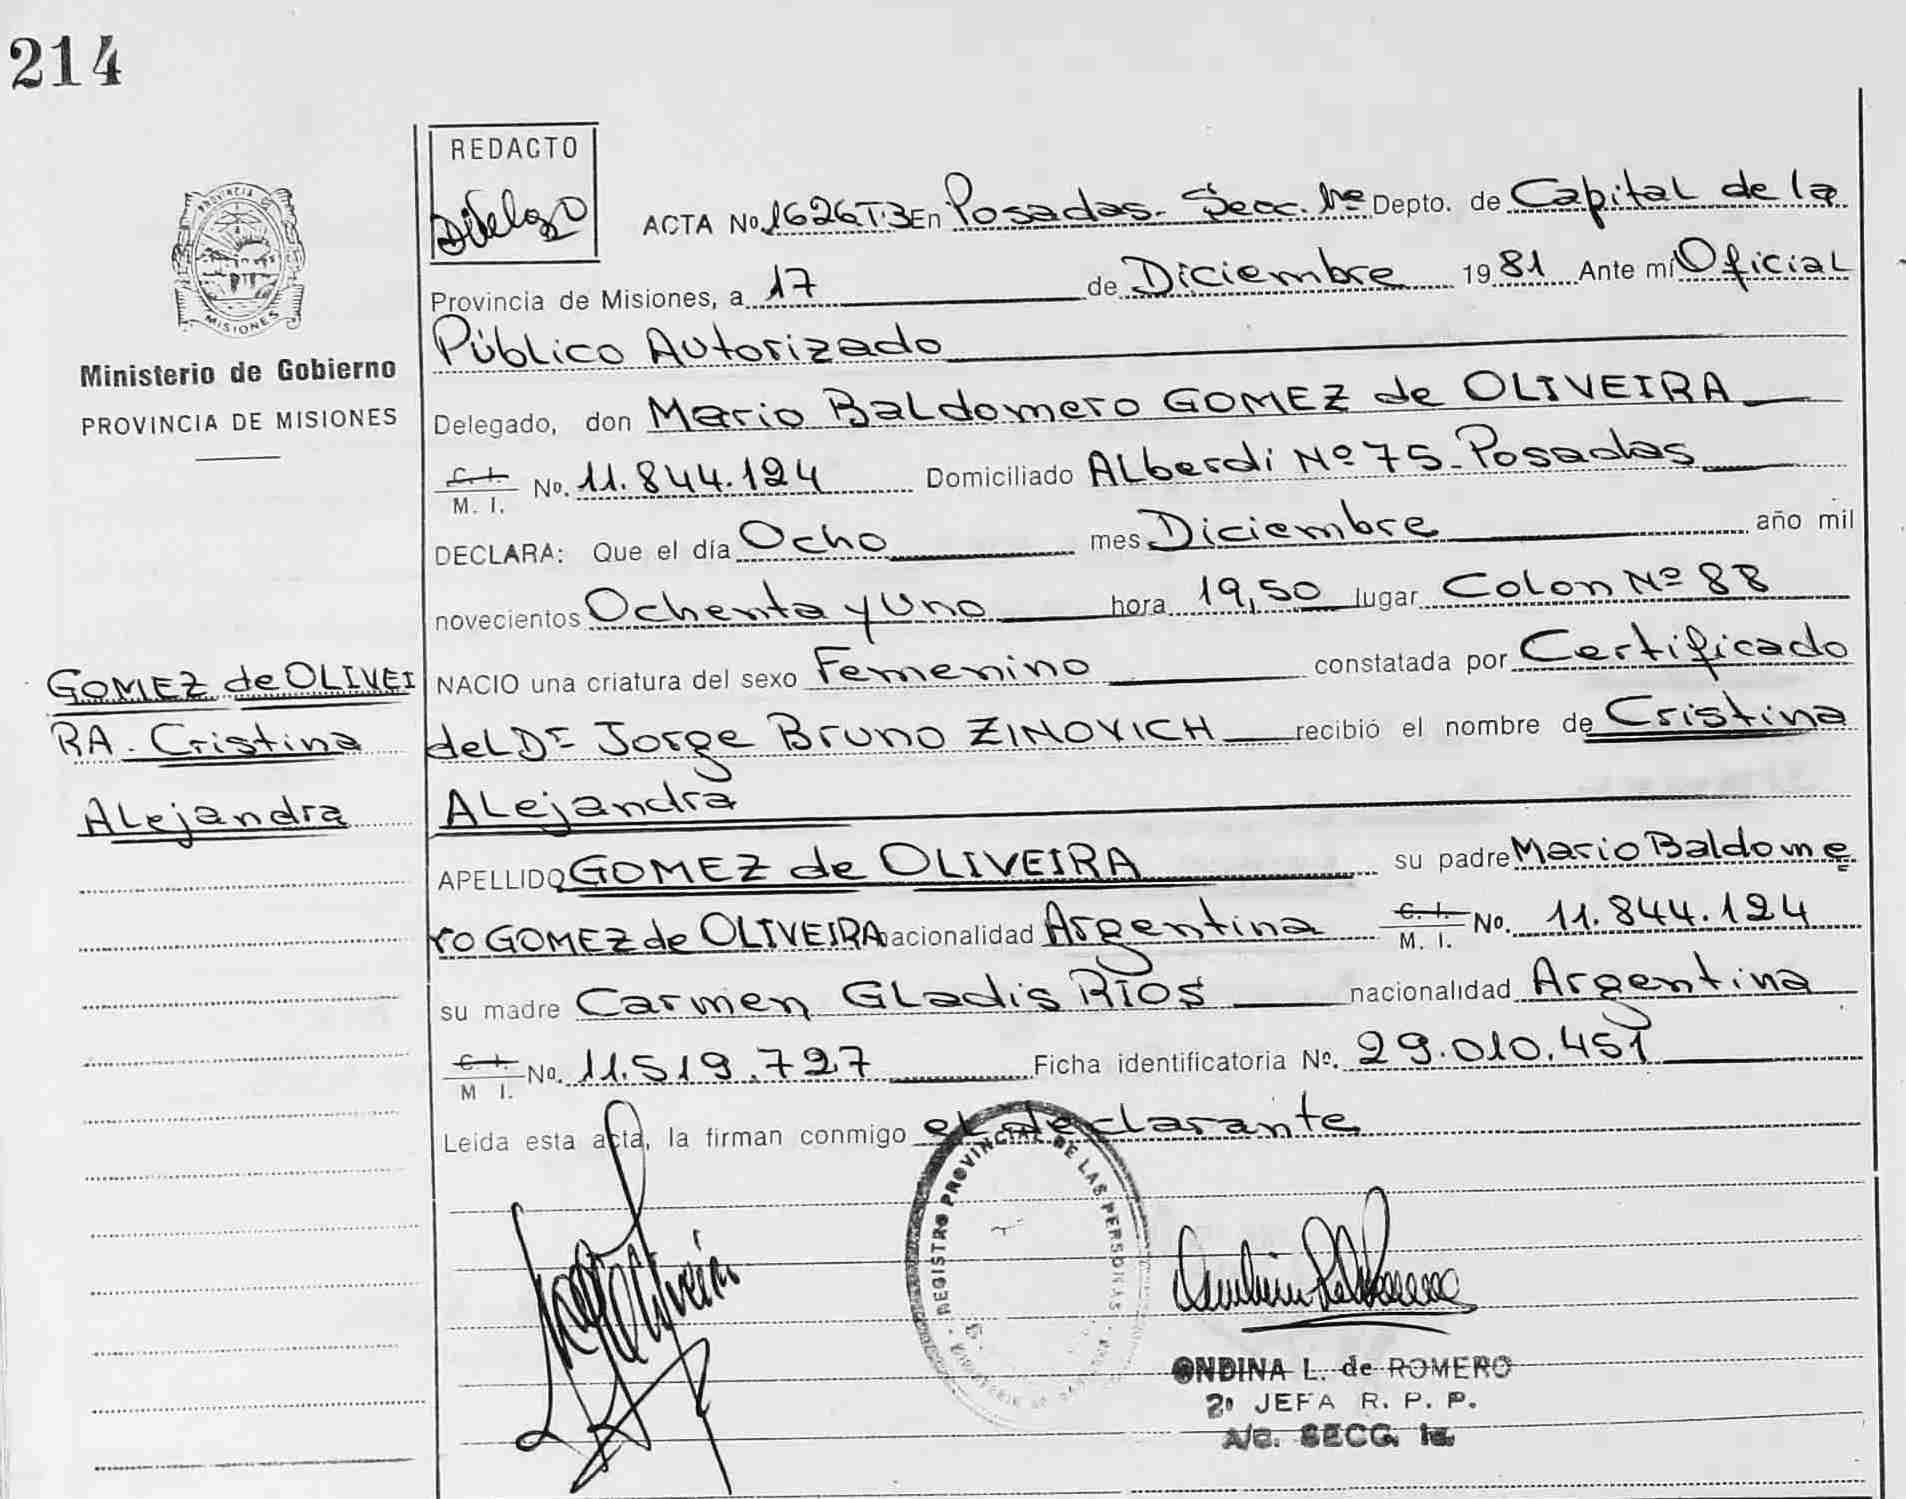 214
REDACTO
ACTA No. 1626 T.3 En Posadas. Secc. 1ª Depto. de Capital de la
Provincia de Misiones, a 17 de Diciembre 1981 Ante mí Oficial
Público Autorizado
Delegado, don Mario Baldomero GOMEZ de OLIVEIRA
C. I. M. I. No. 11.844.124 Domiciliado Alberdi Nº 75. Posadas
DECLARA: Que el día Ocho mes Diciembre año mil
novecientos Ochenta y Uno hora 19,50 lugar Colon Nº 88
NACIO una criatura del sexo Femenino constatada por Certificado
del Dr Jorge Bruno ZINOVICH recibió el nombre de Cristina
Alejandra
APELLIDO GOMEZ de OLIVEIRA su padre Mario Baldome
ro GOMEZ de OLIVEIRA nacionalidad Argentina C. I. M. I. No. 11.844.124
su madre Carmen Gladis RIOS nacionalidad Argentina
C. I. M I. No. 11.519.727 Ficha identificatoria No. 29.010.451
Leida esta acta, la firman conmigo el declarante
PROVINCIA DE
MISIONES
Ministerio de Gobierno
PROVINCIA DE MISIONES
GOMEZ de OLIVEI
RA. Cristina
Alejandra
REGISTRO PROVINCIAL DE LAS PERSONAS
ONDINA L. de ROMERO
2º JEFA R. P. P.
A/C. SECC. 1a.